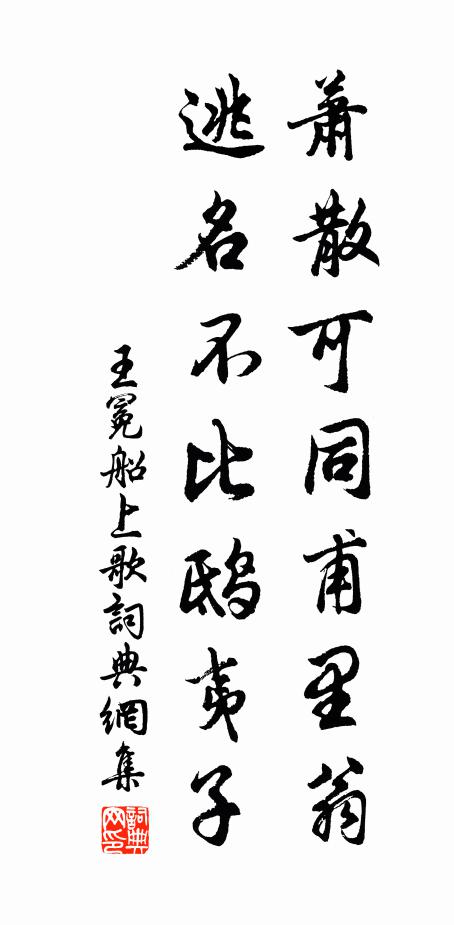 蕭散可同甫里翁
逃名不比鴟夷子
王冕船上歌詞典網集
詞典網印